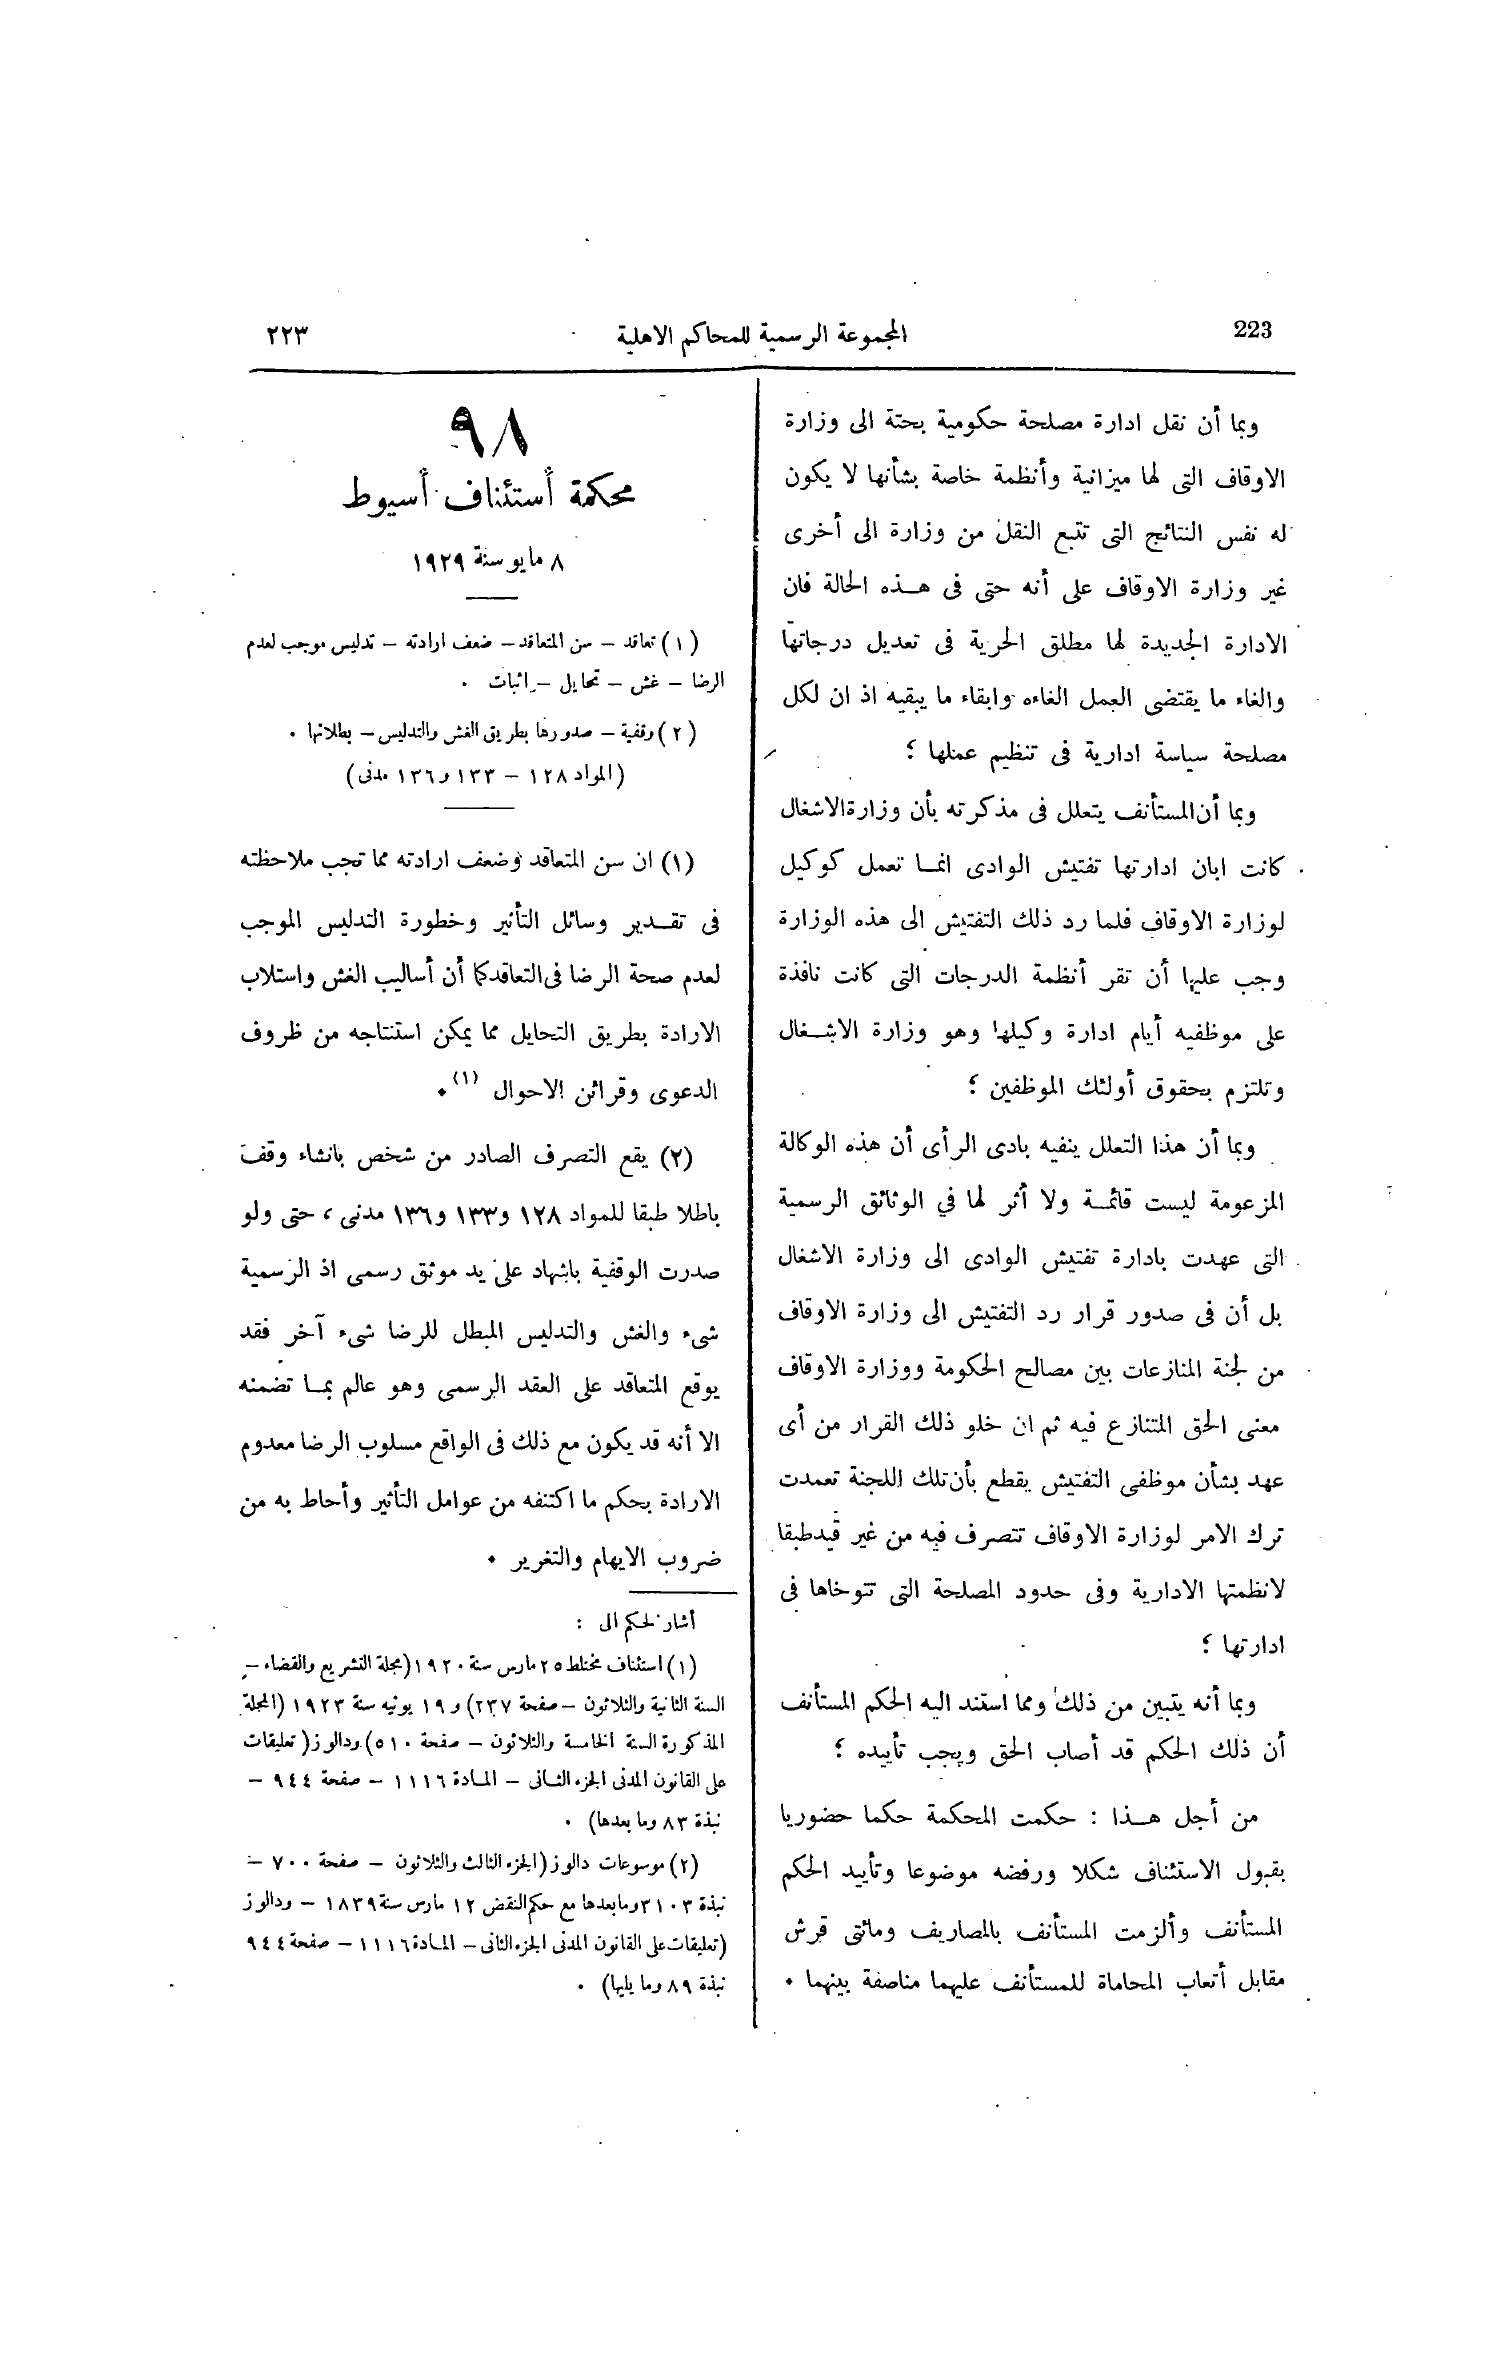 223
المجموعة الرسمية للمحاكم الاهلية
٢٢٣
وبما أن نقل ادارة مصلحة حكومية بحتة الى وزارة
الاوقاف التى لها ميزانية وأنظمة خاصة بشأنها لا يكون
له نفس النتائج التى تتبع النقل من وزارة الى أخرى
غير وزارة الاوقاف على أنه حتى فى هـذه الحالة فان
الادارة الجديدة لها مطلق الحرية فى تعديل درجاتها
والغاء ما يقتضى العمل الغاءه وابقاء ما يبقيه اذ ان لكل
مصلحة سياسة ادارية فى تنظيم عملها ؛
وبما أن المستأنف يتعلل فى مذكرته بأن وزارة الاشغال
كانت ابان ادارتها تفتيش الوادى انمـا تعمل كوكيل
لوزارة الاوقاف فلما رد ذلك التفتيش الى هذه الوزارة
وجب عليها أن تقر أنظمة الدرجات التى كانت نافذة
على موظفيه أيام ادارة وكيلها وهو وزارة الاشـغال
وتلتزم بحقوق أولئك الموظفين ؛
وبما أن هذا التعلل ينفيه بادى الرأى أن هذه الوكالة
المزعومة ليست قائمـة ولا أثر لها في الوثائق الرسمية
التى عهدت بادارة تفتيش الوادى الى وزارة الاشغال
بل أن فى صدور قرار رد التفتيش الى وزارة الاوقاف
من لجنة المنازعات بين مصالح الحكومة ووزارة الاوقاف
معنى الحق المتنازع فيه ثم ان خلو ذلك القرار من أى
عهد بشأن موظفى التفتيش يقطع بأن تلك اللجنة تعمدت
ترك الامر لوزارة الاوقاف تتصرف فيه من غير قيد طبقا
لانظمتها الادارية وفى حدود المصلحة التى تتوخاها فى
ادارتها ؛
وبما أنه يتبين من ذلك ومما استند اليه الحكم المستأنف
أن ذلك الحكم قد أصاب الحق ويجب تأييده ؛
من أجل هـذا : حكمت المحكمة حكما حضوريا
بقبول الاستئناف شكلا ورفضه موضوعا وتأييد الحكم
المستأنف وألزمت المستأنف بالمصاريف ومائتى قرش
مقابل أتعاب المحاماة للمستأنف عليهما مناصفة بينهما .
٩٨
محكمة أستئناف أسيوط
٨ مايو سنة ١٩٢٩
(١) تعاقد – سن المتعاقد – ضعف ارادته – تدليس موجب لعدم
الرضا – غش – تحايل – اثبات .
(٢) وقفية – صدورها بطريق الغش والتدليس – بطلانها .
(المواد ١٢٨ – ١٣٣ و ١٣٦ مدنى)
(١) ان سن المتعاقد وضعف ارادته مما تجب ملاحظته
فى تقـدير وسائل التأثير وخطورة التدليس الموجب
لعدم صحة الرضا فى التعاقد كما أن أساليب الغش واستلاب
الارادة بطريق التحايل مما يمكن استنتاجه من ظروف
الدعوى وقرائن الاحوال (١) .
(٢) يقع التصرف الصادر من شخص بانشاء وقف
باطلا طبقا للمواد ١٢٨ و ١٣٣ و ١٣٦ مدنى ، حتى ولو
صدرت الوقفية باشهاد على يد موثق رسمى اذ الرسمية
شىء والغش والتدليس المبطل للرضا شىء آخر فقد
يوقع المتعاقد على العقد الرسمى وهو عالم بمـا تضمنه
الا أنه قد يكون مع ذلك فى الواقع مسلوب الرضا معدوم
الارادة بحكم ما اكتنفه من عوامل التأثير وأحاط به من
ضروب الايهام والتغرير .
أشار الحكم الى :
(١) استئناف مختلط ٢٥ مارس سنة ١٩٢٠ (مجلة التشريع والقضاء –
السنة الثانية والثلاثون – صفحة ٢٣٧) و ١٩ يونيه سنة ١٩٢٣ (المجلة
المذكورة السنة الخامسة والثلاثون – صفحة ٥١٠) ودالوز (تعليقات
على القانون المدنى الجزء الثـانى – المـادة ١١١٦ – صفحة ٩٤٤ –
نبذة ٨٣ وما بعدها) .
(٢) موسوعات دالوز (الجزء الثالث والثلاثون – صفحة ٧٠٠ –
نبذة ٣١٠٣ وما بعدها مع حكم النقض ١٢ مارس سنة ١٨٣٩ – ودالوز
(تعليقات على القانون المدنى الجزء الثانى – المـادة ١١١٦ – صفحة ٩٤٤
نبذة ٨٩ وما يليها) .